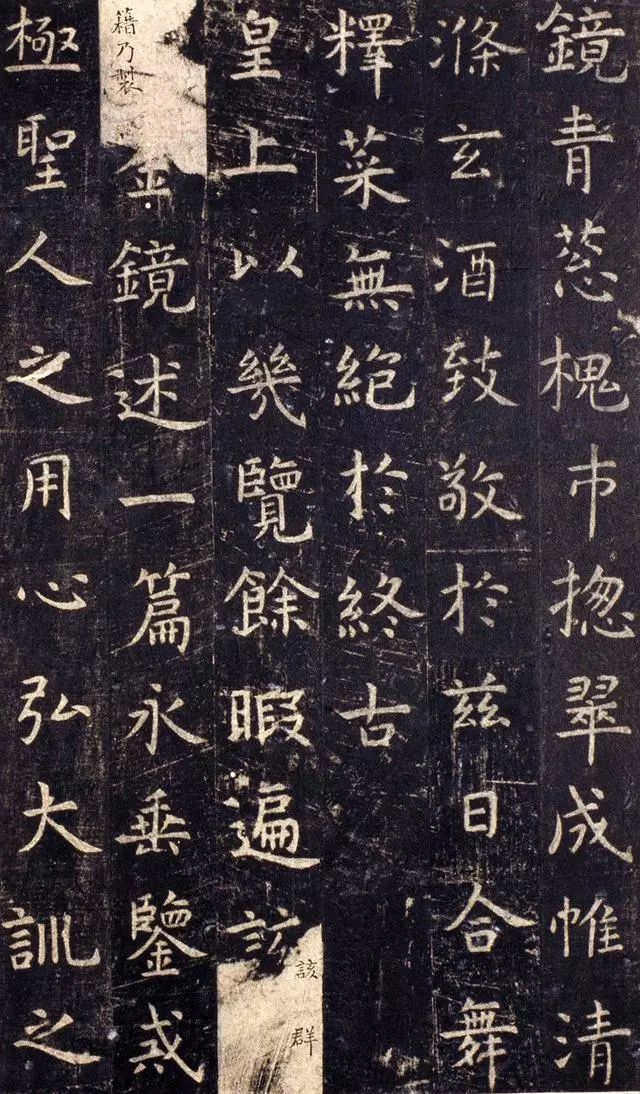 鏡青蔥槐市揔翠成帷清
滌玄酒致敬於兹日合舞
釋菜無絶於終古
皇上以幾覽餘暇遍該該群
籍乃製金鏡述一篇永垂鑒戒
極聖人之用心弘大訓之